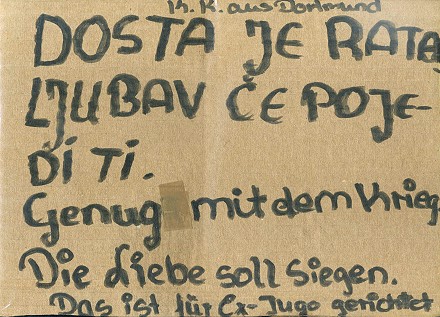 K. K. aus Dortmund
DOSTA JE RATA
LJUBAV ČE POJE-
DI TI.
Genug mit dem Krieg
Die Liebe soll Siegen.
Das ist für Ex-Jugo gerichtet